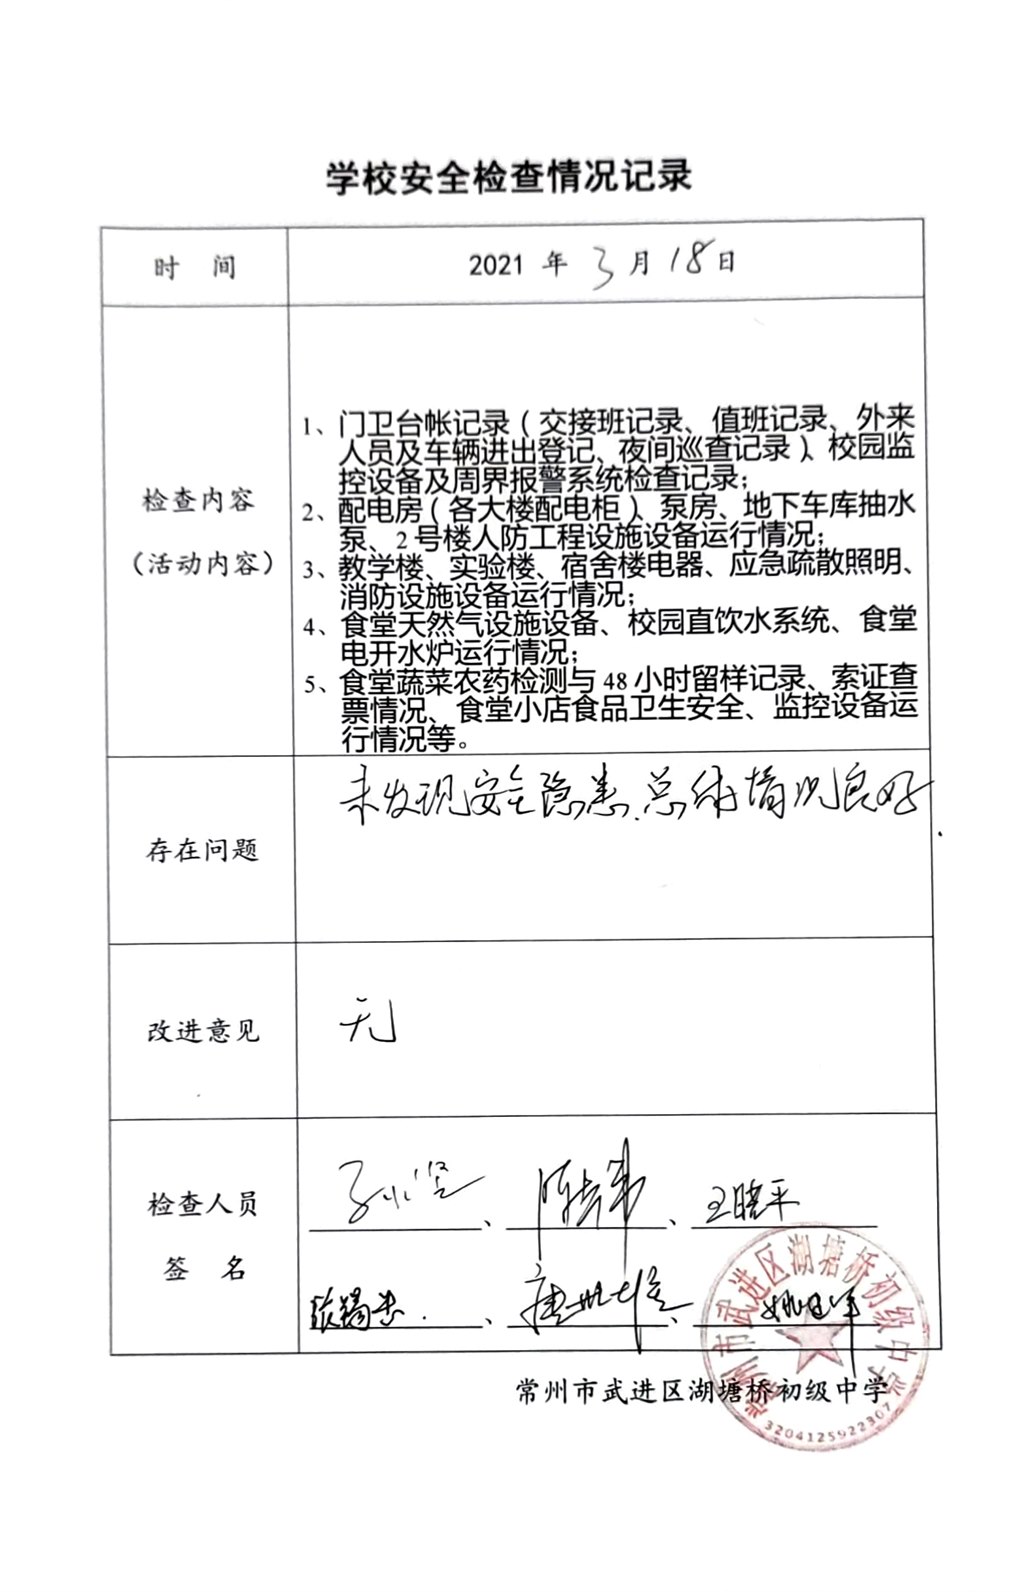 学校安全检查情况记录
时 间
2021 年 3 月 18 日
检查内容
（活动内容）
1、门卫台帐记录（交接班记录、值班记录、外来
人员及车辆进出登记、夜间巡查记录）、校园监
控设备及周界报警系统检查记录；
2、配电房（各大楼配电柜）、泵房、地下车库抽水
泵、2号楼人防工程设施设备运行情况；
3、教学楼、实验楼、宿舍楼电器、应急疏散照明、
消防设施设备运行情况；
4、食堂天然气设施设备、校园直饮水系统、食堂
电开水炉运行情况；
5、食堂蔬菜农药检测与 48 小时留样记录、索证查
票情况、食堂小店食品卫生安全、监控设备运
行情况等。
存在问题
未发现安全隐患.总体情况良好.
改进意见
无
检查人员
签 名
、 、王晓平
、 、
常州市武进区湖塘桥初级中学
常州市武进区湖塘桥初级中学
3204125922307